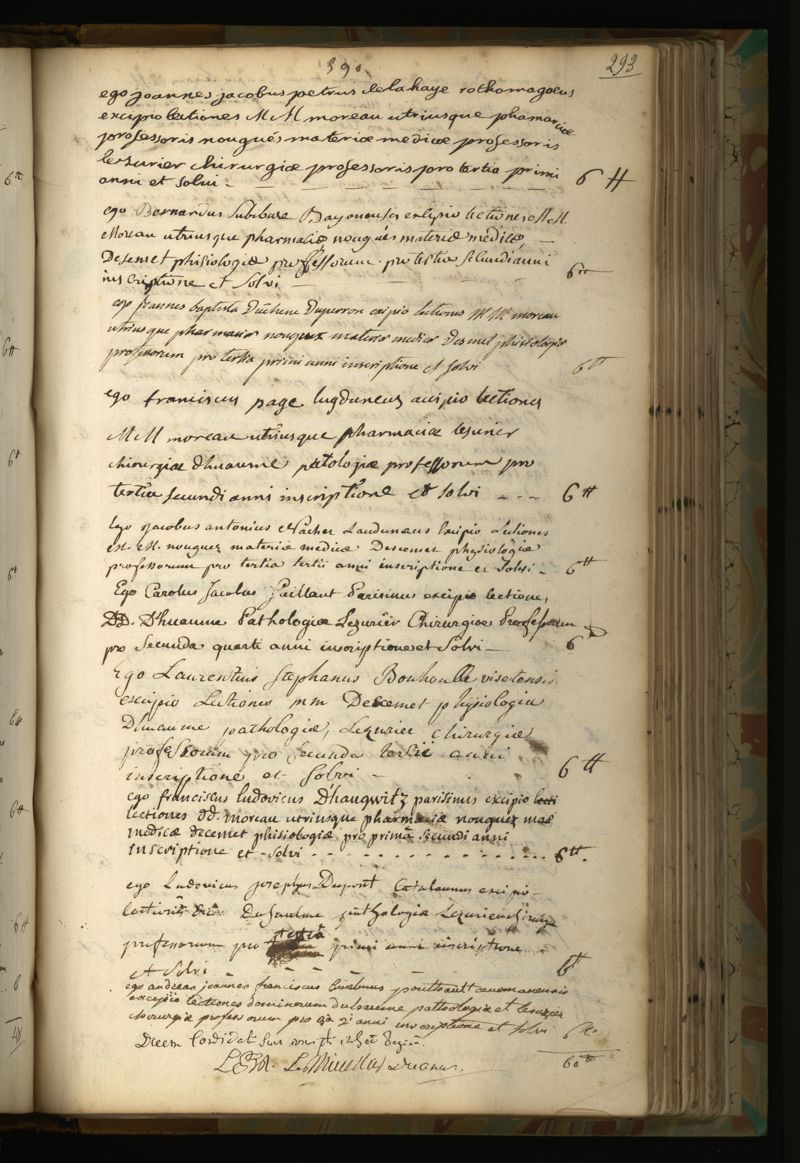 390
293
ego joannes jacobus petrus delahaye rothomagoeus
excipio lectiones MM moreau utriusque phamarciæ
professoris nougués materiæ medicæ professoris
lezurier chirurgiæ professoris pro tertia primi
anni et solvi - 6 tt
ego Bernardus Bayonensis excipio lectiones M.M.
Moreau utriusque pharmaciæ nougués materiæ médicæ
Desemet phisiologiæ professorum pro tertia secundi anni
inscriptione et Solvi 6 tt
ego joannes baptista duchene Duperron exipio lectiones MM moreau
utriusque pharmaciæ nouguez materiæ medicæ desmet phisiologiæ
professorum pro tertia primi anni inscriptione et solvi 6 tt
ego franciscus page lugduneus accipio lectiones
MM moreau utriusque pharmaciæ lesurier
chirurgiæ dhuaume patologiæ professorum pro
tertia secundi anni inscriptione et solvi - - - 6 tt
Ego jacobus antonius Laudunæus Excipio Lectiones
M. M. nouguez materiæ medicæ Descemet physiologiæ
professorum pro tertia tertii anni inscriptione et Solvi - 6 tt
Ego Carolus Jacobus Paillant Parisinus excipio lectiones
DD. Dhuaume Pathologiæ Lezurier Chirurgiæ Professorum
pro Secunda quarti anni inscriptione et Solvi - 6
Ego Laurentius Stephanus Bonhoulle
excipio Lectiones mm Descemet physiologiæ
Dhuaume pathologiæ, Lezurier chirurgiæ
professorum pro Secunda tertii anni
inscriptione et Solvi - 6 tt
ego franciscus ludovicus D'haugwitz parisinus excipio lecti
lectiones dd. moreau utriusque pharmaciæ nouguez maæ
medicæ decemet phisiologiæ pro primâ Secundi anni
inscriptione et Solvi - - - - 6 tt.
ego Ludovicus josephus Dupont Catalaunus excipio
lectiones Duhaulme pathologiæ Lezurier chirurgiæ
professorum pro tertiâ primi anni inscriptione
et Solvi - - - - 6 tt
ego andreas joannes franciscus poutheault cenomanensis
excipio lectiones dominorum duhaume pathologiæ et lesurier
chirurgiæ professorum pro 3â 2i anni inscriptione et solvi 6 tt
60 tt
decanus.